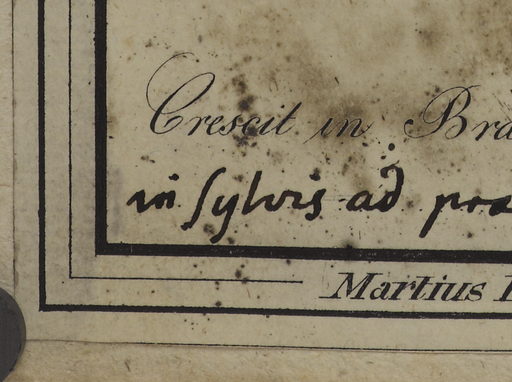 Crescit in Bra
in sylvis ad prae
Martius